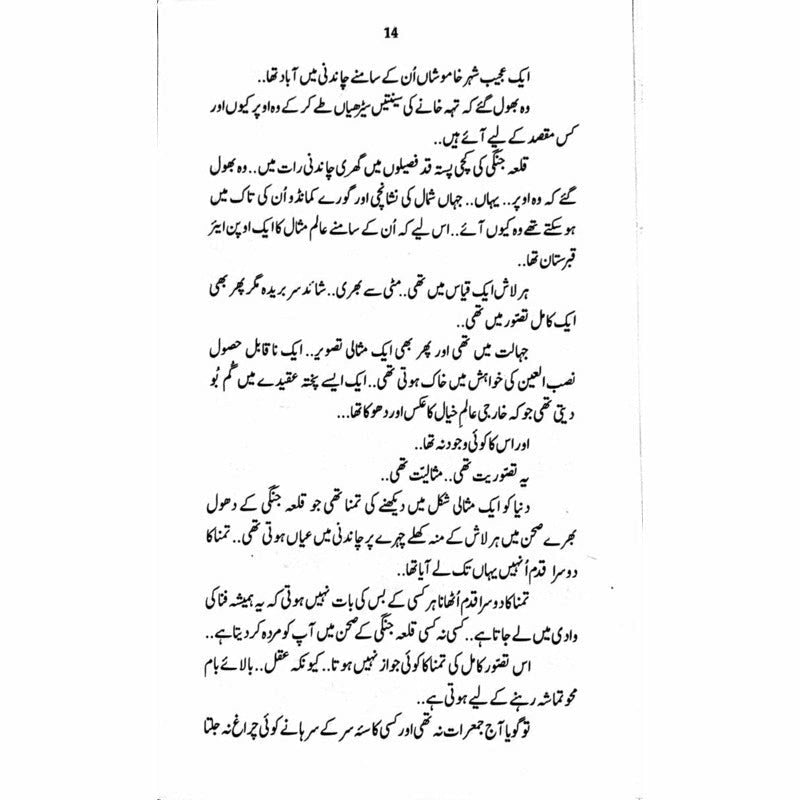 14
ایک عجیب شہر خاموشاں اُن کے سامنے چاندنی میں آباد تھا..
وہ بھول گئے کہ تہہ خانے کی سینتیں سیڑھیاں طے کر کے وہ اوپر کیوں اور
کس مقصد کے لیے آئے ہیں..
قلعہ جنگی کی کچی پستہ قد فصیلوں میں گھری چاندنی رات میں.. وہ بھول
گئے کہ وہ اوپر.. یہاں.. جہاں شمال کی نشانچی اور گورے کمانڈو اُن کی تاک میں
ہو سکتے تھے وہ کیوں آئے.. اس لیے کہ اُن کے سامنے عالم مثال کا ایک اوپن ایئر
قبرستان تھا..
ہر لاش ایک قیاس میں تھی.. مٹی سے بھری.. شائد سر بریدہ مگر پھر بھی
ایک کامل تصّور میں تھی..
جہالت میں تھی اور پھر بھی ایک مثالی تصویر.. ایک ناقابل حصول
نصب العین کی خواہش میں خاک ہوتی تھی.. ایک ایسے پختہ عقیدے میں گُم بُو
دیتی تھی جو کہ خارجی عالمِ خیال کا عکس اور دھوکا تھا...
اور اس کا کوئی وجود نہ تھا..
یہ تصّوریت تھی.. مثالیّت تھی..
دنیا کو ایک مثالی شکل میں دیکھنے کی تمنا تھی جو قلعہ جنگی کے دھول
بھرے صحن میں ہر لاش کے منہ کھلے چہرے پر چاندنی میں عیاں ہوتی تھی.. تمنا کا
دوسرا قدم اُنہیں یہاں تک لے آیا تھا..
تمنا کا دوسرا قدم اُٹھانا ہر کسی کے بس کی بات نہیں ہوتی کہ یہ ہمیشہ فنا کی
وادی میں لے جاتا ہے.. کسی نہ کسی قلعہ جنگی کے صحن میں آپ کو مردہ کر دیتا ہے..
اس تصّور کامل کی تمنا کا کوئی جواز نہیں ہوتا.. کیونکہ عقل.. بالائے بام
محو تماشہ رہنے کے لیے ہوتی ہے..
تو گویا آج جمعرات نہ تھی اور کسی کاسۂ سر کے سرہانے کوئی چراغ نہ جلتا